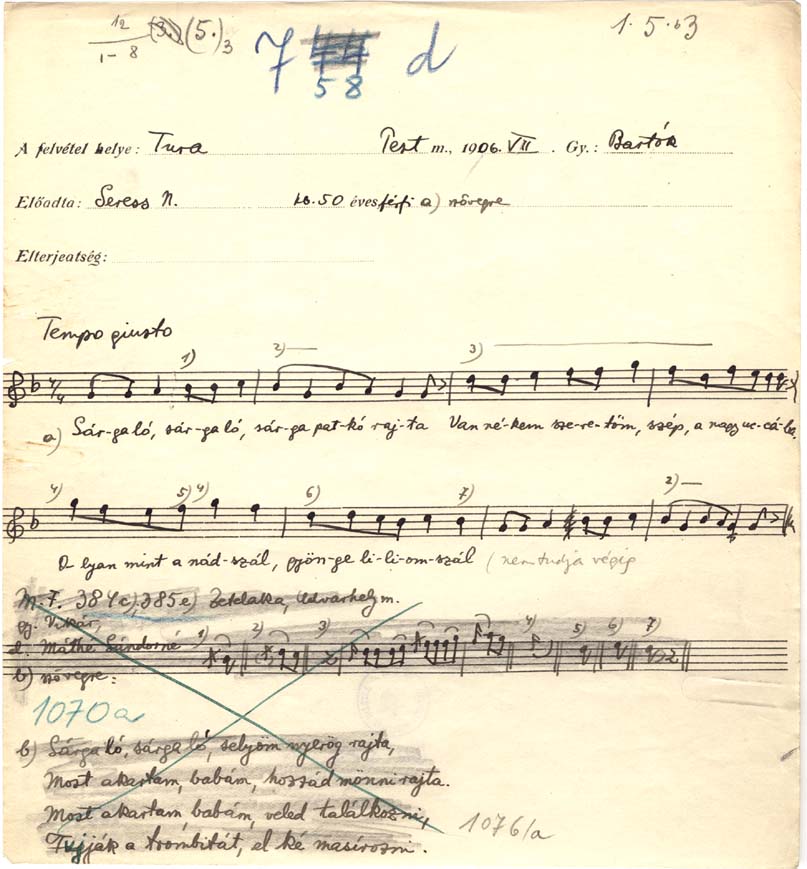 12
1-8
(5.)3
1.5.63
7 d
58
A felvétel helye: Tura Pest m., 1906. VII. Gy.: Bartók
Előadta: Seress N. 18.50 éves férfi a) szövegre
Elterjedtség:
Tempo giusto
1) 2) 3)
a) Sár-ga ló, sár-ga ló, sár-ga pat-kó raj-ta Van né-kem sze-re-tőm, szép, a nagy uc-cá-ba,
4) 5) 4) 6) 7) 2)
Olyan mint a nád-szál, gyön-ge li-li-om-szál (nem tudja végig
M.F. 384c), 385e) Zetelaka, Udvarhely m.
gy. Vikár,
é. Máthé Sándorné 1) 2) 3) 4) 5) 6) 7)
b) szövegre:
1070a
b) Sárga ló, sárga ló, selyöm nyerög rajta,
Most akartam, babám, hozzád mönni rajta.
Most akartam, babám, veled találkozni,
Fujják a trombitát, el ké masírozni.
1076/a